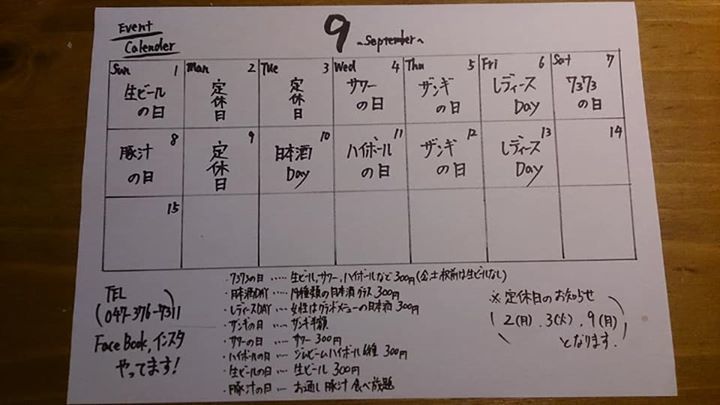 Event
Calender
9 ~September~
Sun 1 Mon 2 Tue 3 Wed 4 Thu 5 Fri 6 Sat 7
生ビールの日 定休日 定休日 サワーの日 ザンギの日 レディースDay 7373の日
8 9 10 11 12 13 14
豚汁の日 定休日 日本酒Day ハイボールの日 ザンギの日 レディースDay
15
・7373の日 …… 生ビール,サワー,ハイボールなど 300円
・日本酒DAY …… 19種類の日本酒グラス 300円
・レディースDAY … 女性はグランドメニューの日本酒 300円
・ザンギの日 … ザンギ半額
・サワーの日 … サワー 300円
・ハイボールの日 … ジムビームハイボール 300円
・生ビールの日 … 生ビール 300円
・豚汁の日 … お通し 豚汁 食べ放題
TEL
(047-376-7311)
FaceBook,インスタ
やってます!
※定休日のお知らせ
2(月).3(火).9(月)
となります.